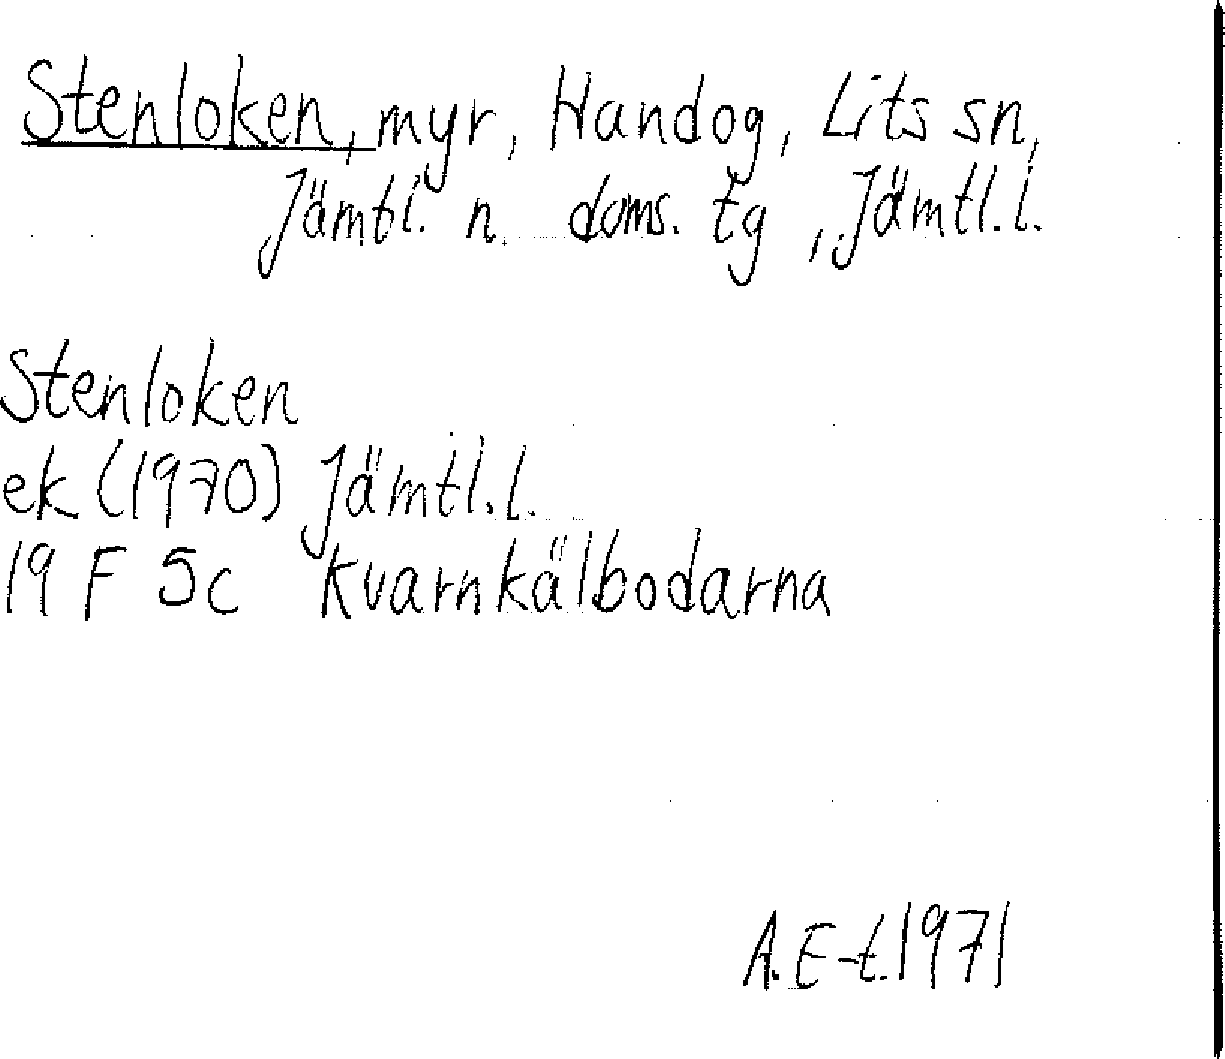 Stenloken, myr, Handog, Lits sn,
Jämtl. n. doms. tg, Jämtl.l.
Stenloken
ek (1970) Jämtl.l.
19 F 5c Kvarnkälbodarna
A. E-t. 1971